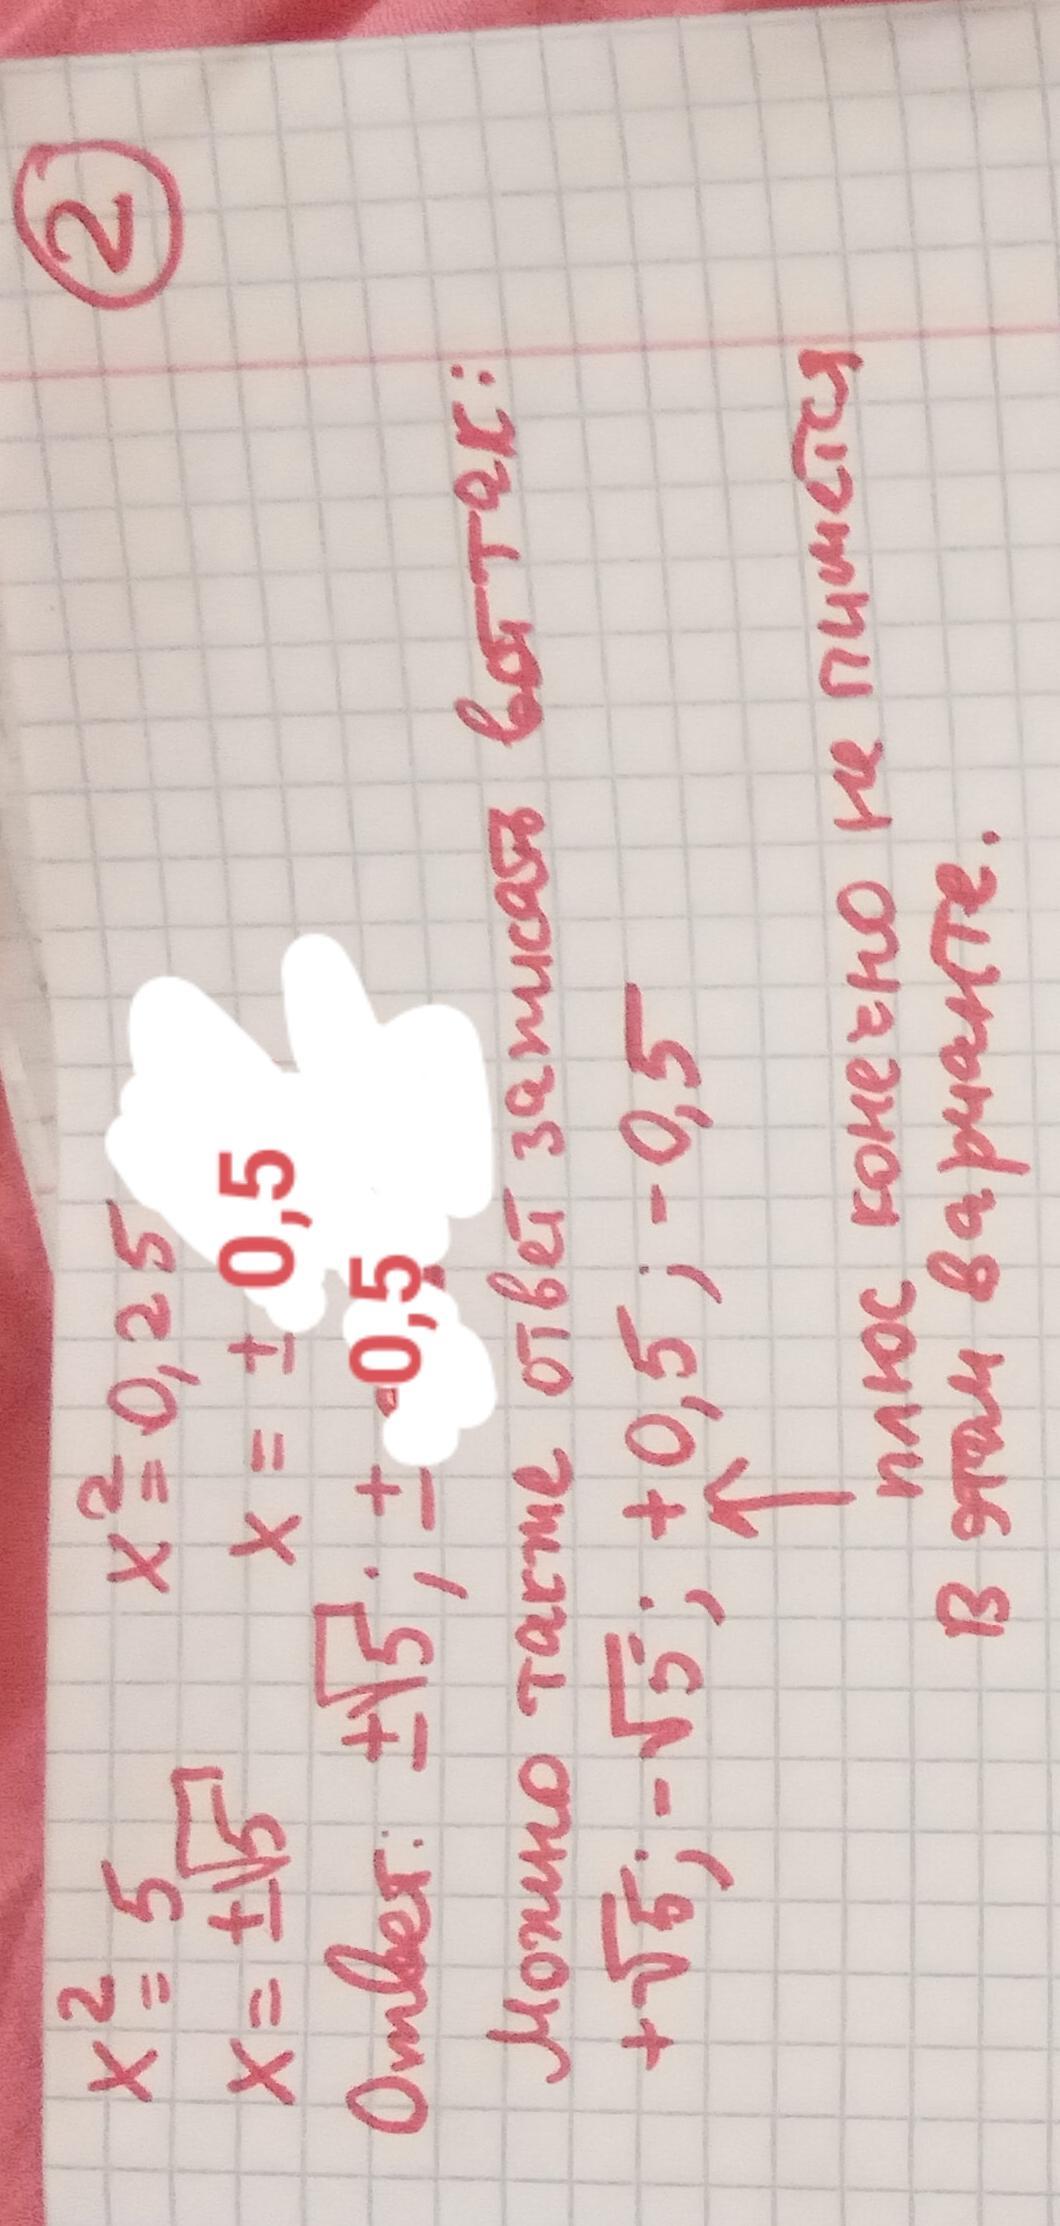 2
x² = 5 x² = 0,25
x = ±√5 x = ± 0,5
Ответ: ±√5; ± 0,5
Можно также ответ записать вот так:
+√5; -√5; +0,5; -0,5
плюс конечно не пишется
в этом варианте.